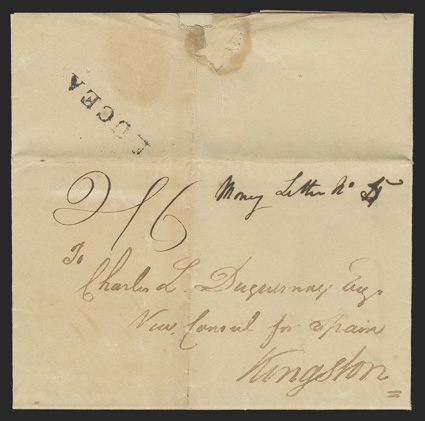 LUCEA
Money Letter No
2/6
To
Charles L. Duquesnay Esqr
Vice Consul for Spain
Kingston